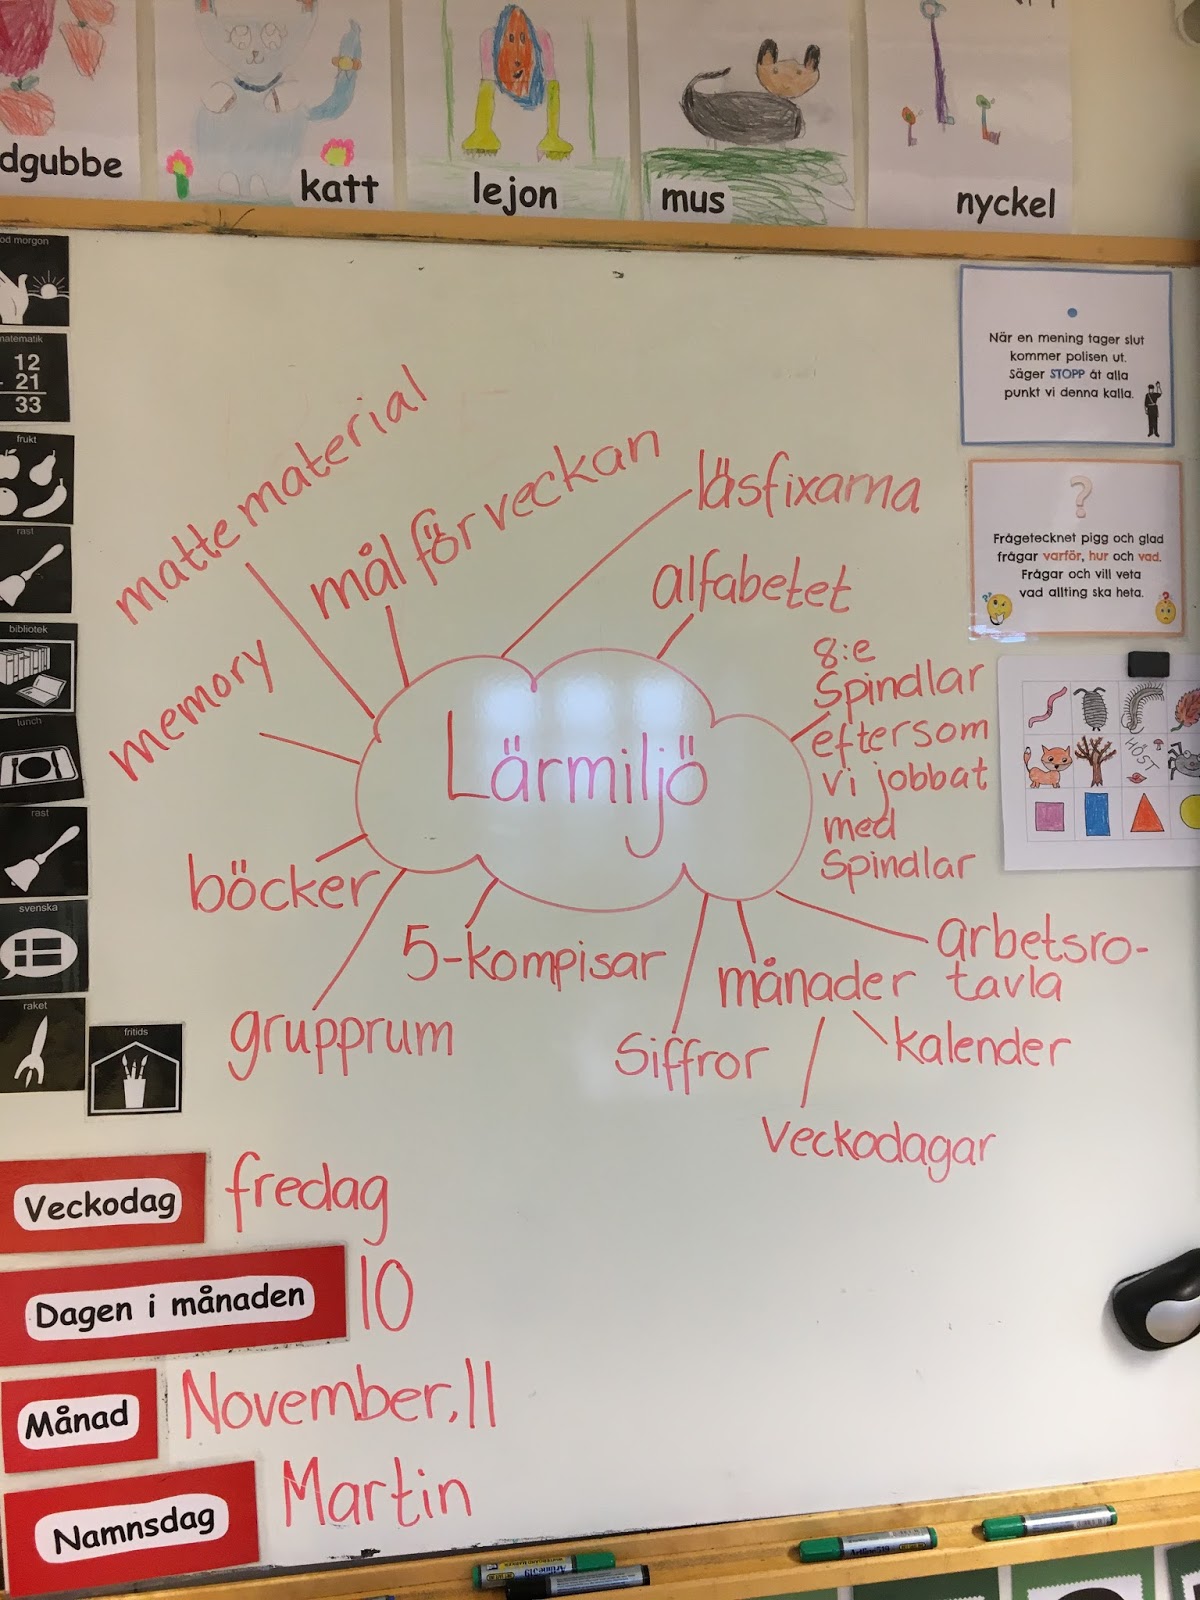 dgubbe
katt
lejon
mus
nyckel
od morgon
matematik
12
21
33
frukt
rast
bibliotek
lunch
rast
svenska
raket
fritids
När en mening tager slut
kommer polisen ut.
Säger STOPP åt alla
punkt vi denna kalla.
?
Frågetecknet pigg och glad
frågar varför, hur och vad.
Frågar och vill veta
vad allting ska heta.
HÖST
matte material
mål för veckan
läsfixarna
alfabetet
memory
8:e
Spindlar
eftersom
vi jobbat
med
Spindlar
Lärmiljö
böcker
5-kompisar
grupprum
Siffror
månader
arbetsro-
tavla
kalender
veckodagar
Veckodag fredag
Dagen i månaden 10
Månad November.11
Namnsdag Martin